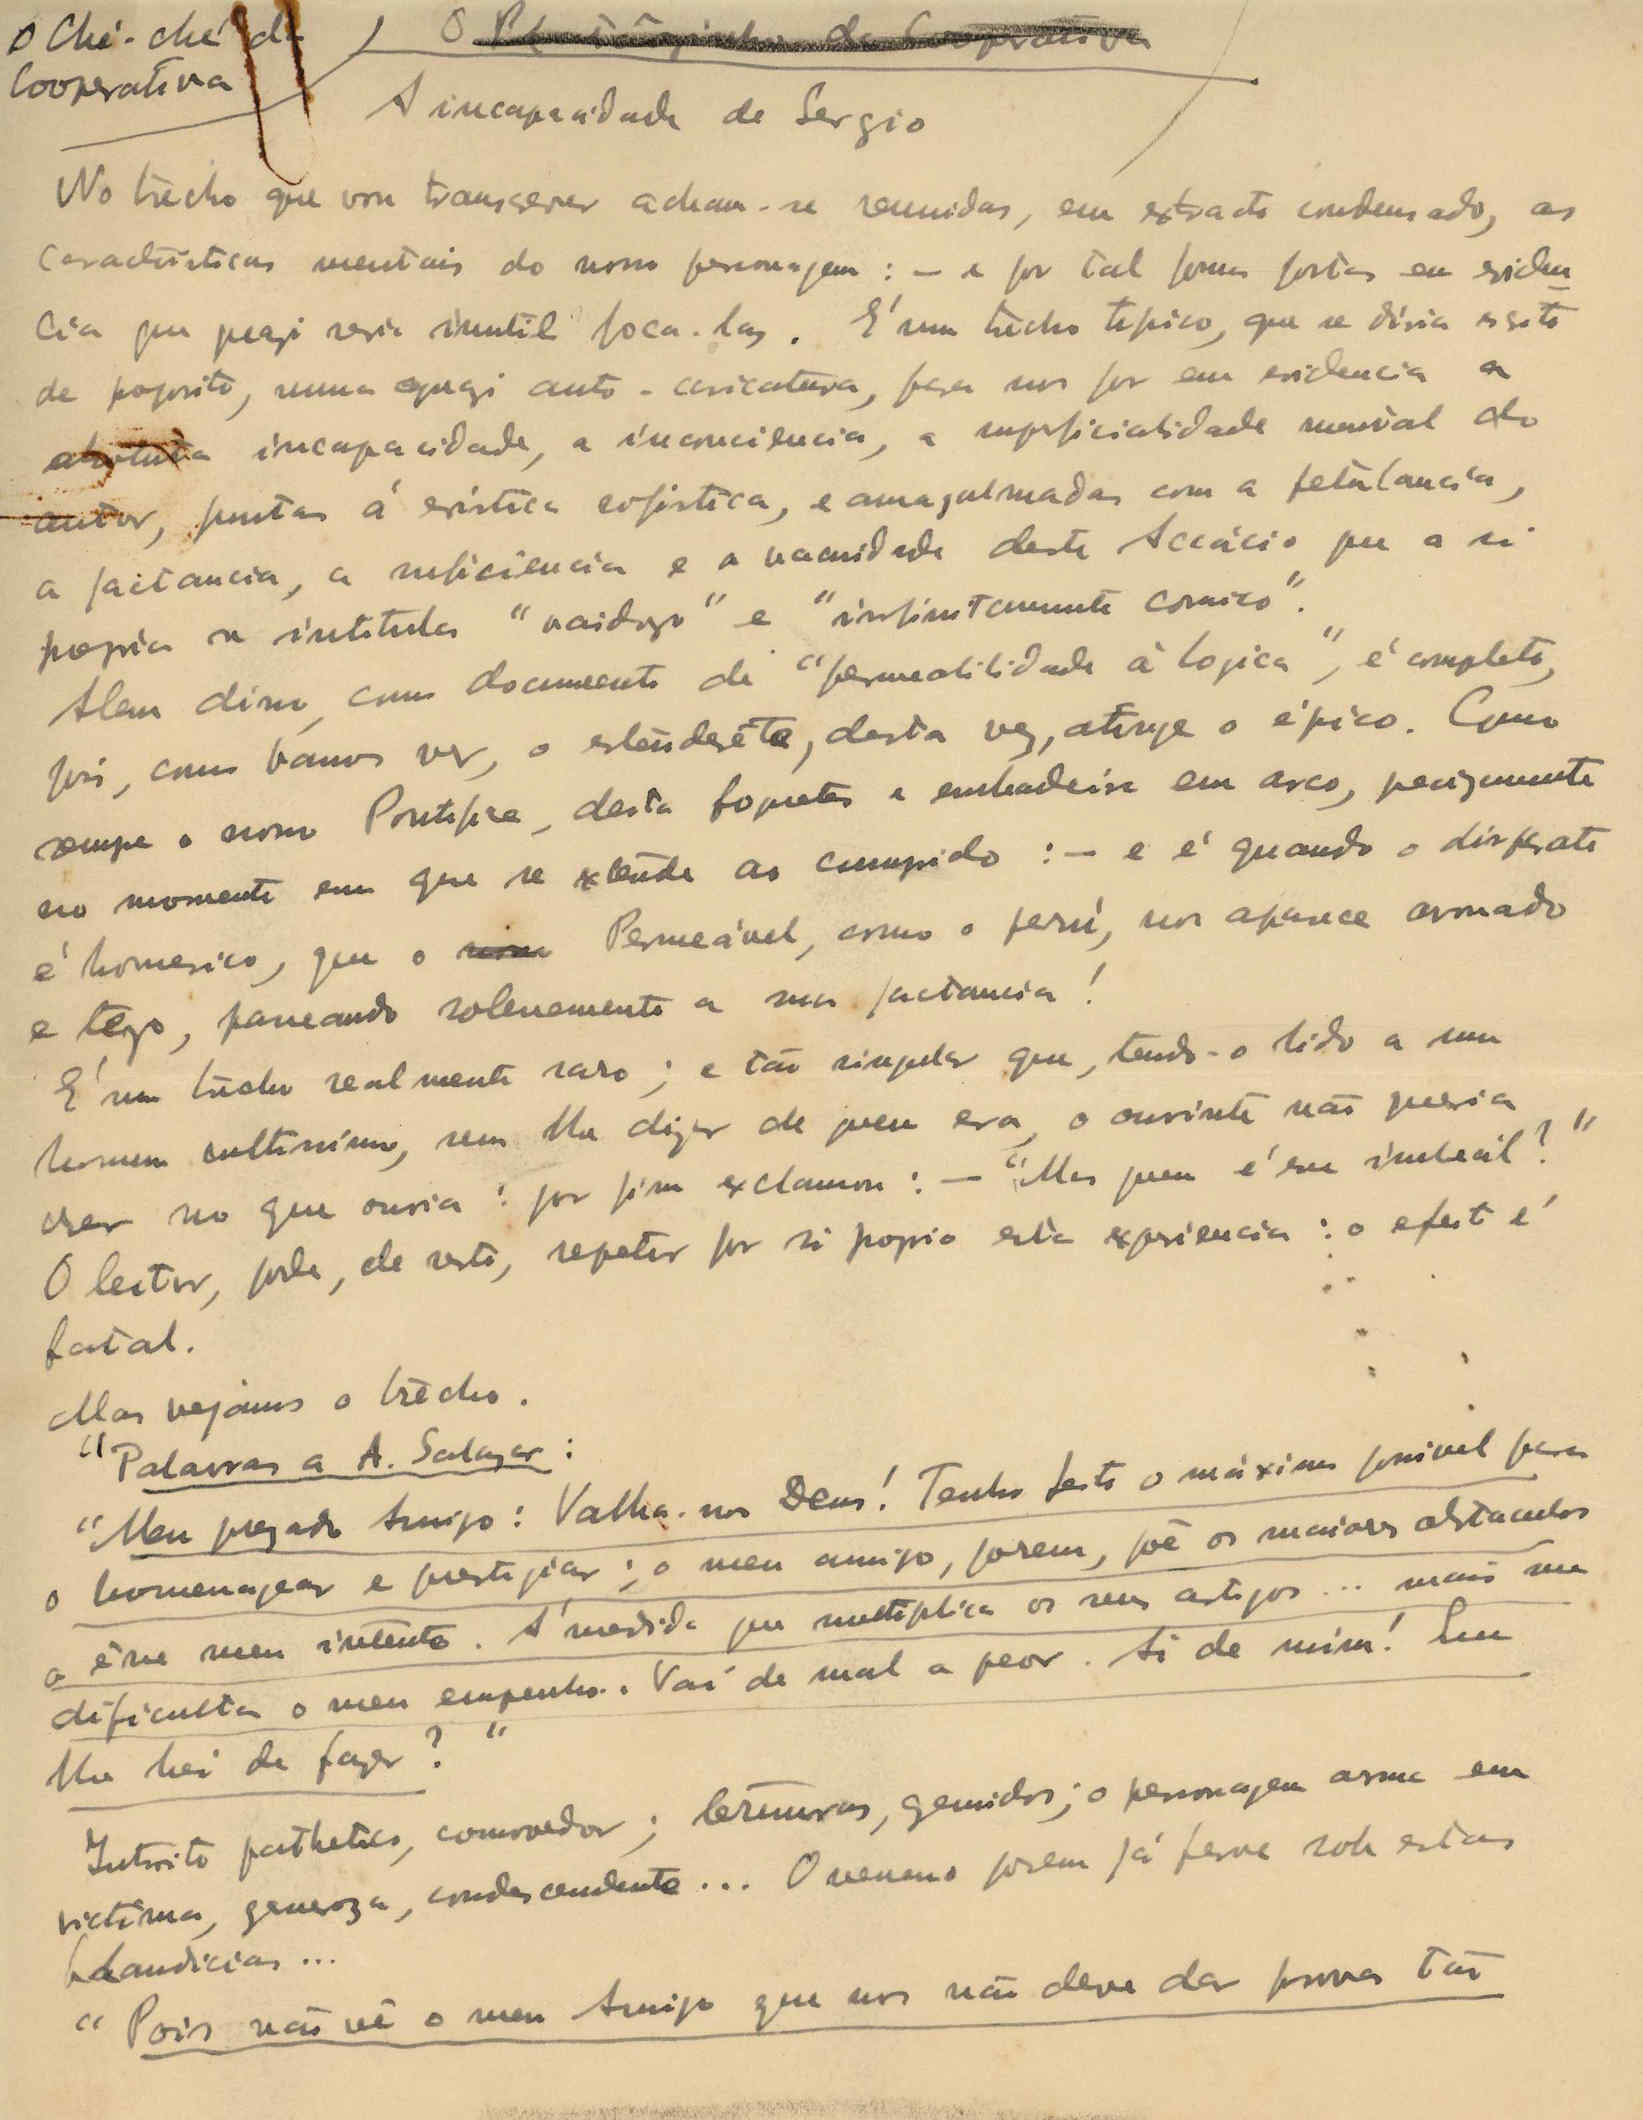 O Ché-ché da
Cooperativa
O da Cooperativa
A incapacidade de Sergio
No trecho que vou transcrever acham-se reunidas, em extracto condensado, as
caracteristicas mentais do nosso personagem : – e por tal forma postas em eviden
cia que quazi seria inutil foca-las. É um trecho tipico, que se diria escrito
de proposito, numa quazi auto-caricatura, para nos pôr em evidencia a
absoluta incapacidade, a inconciencia, a superficialidade mental do
autor, juntas á eristica sofistica, e amagalmadas com a petulancia,
a jactancia, a suficiencia e a vacuidade deste Accácio que a si
proprio se intitula "vaidozo" e "infinitamente comico".
Alem disso, como documento de "permeabilidade á logica", é completo,
pois, como vamos ver, o estenderête, desta vez, atinge o épico. Como
sempre o nosso Pontifice, deita foguetes e embadeira em arco, precizamente
no momento em que se extende ao comprido : – e é quando o disparate
é homerico, que o Permeável, como o perú, nos aparece armado
e tezo, passeando solenemente a sua jactancia!
É um trecho realmente raro ; e tão singular que, tendo-o lido a um
homem cultissimo, sem lhe dizer de quem era, o ouvinte não queria
crer no que ouvia : por fim exclamou : – "Mas quem é esse imbecil ? "
O leitor, pode, de resto, repetir por si proprio esta experiencia : o efeito é
fatal.
Mas vejamos o trêcho.
"Palavras a A. Salazar :
"Meu prezado Amigo : Valha-nos Deus! Tenho feito o máximo possivel para
o homenagear e prestigiar ; o meu amigo, porem, põe os maiores obstaculos
a êsse meu intento. Á medida que multiplica os seus artigos ... mais me
dificulta o meu empenho. Vai de mal a peor. Ai de mim! Que
lhe hei de fazer ? "
Introito pathetico, comovedor ; ternuras, gemidos ; o personagem arma em
victima, generoza, condescendente ... O veneno porem já ferve sob estas
blandicias ...
"Pois não vê o meu Amigo que nos não deve dar provas tão